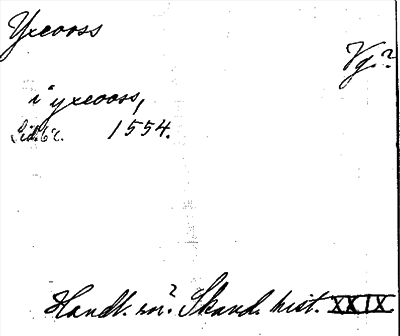 Yxeooss
Vg.?
i yxeooss,
Lid. 62. 1554.
Handl. rör? Skand. hist. XXIX